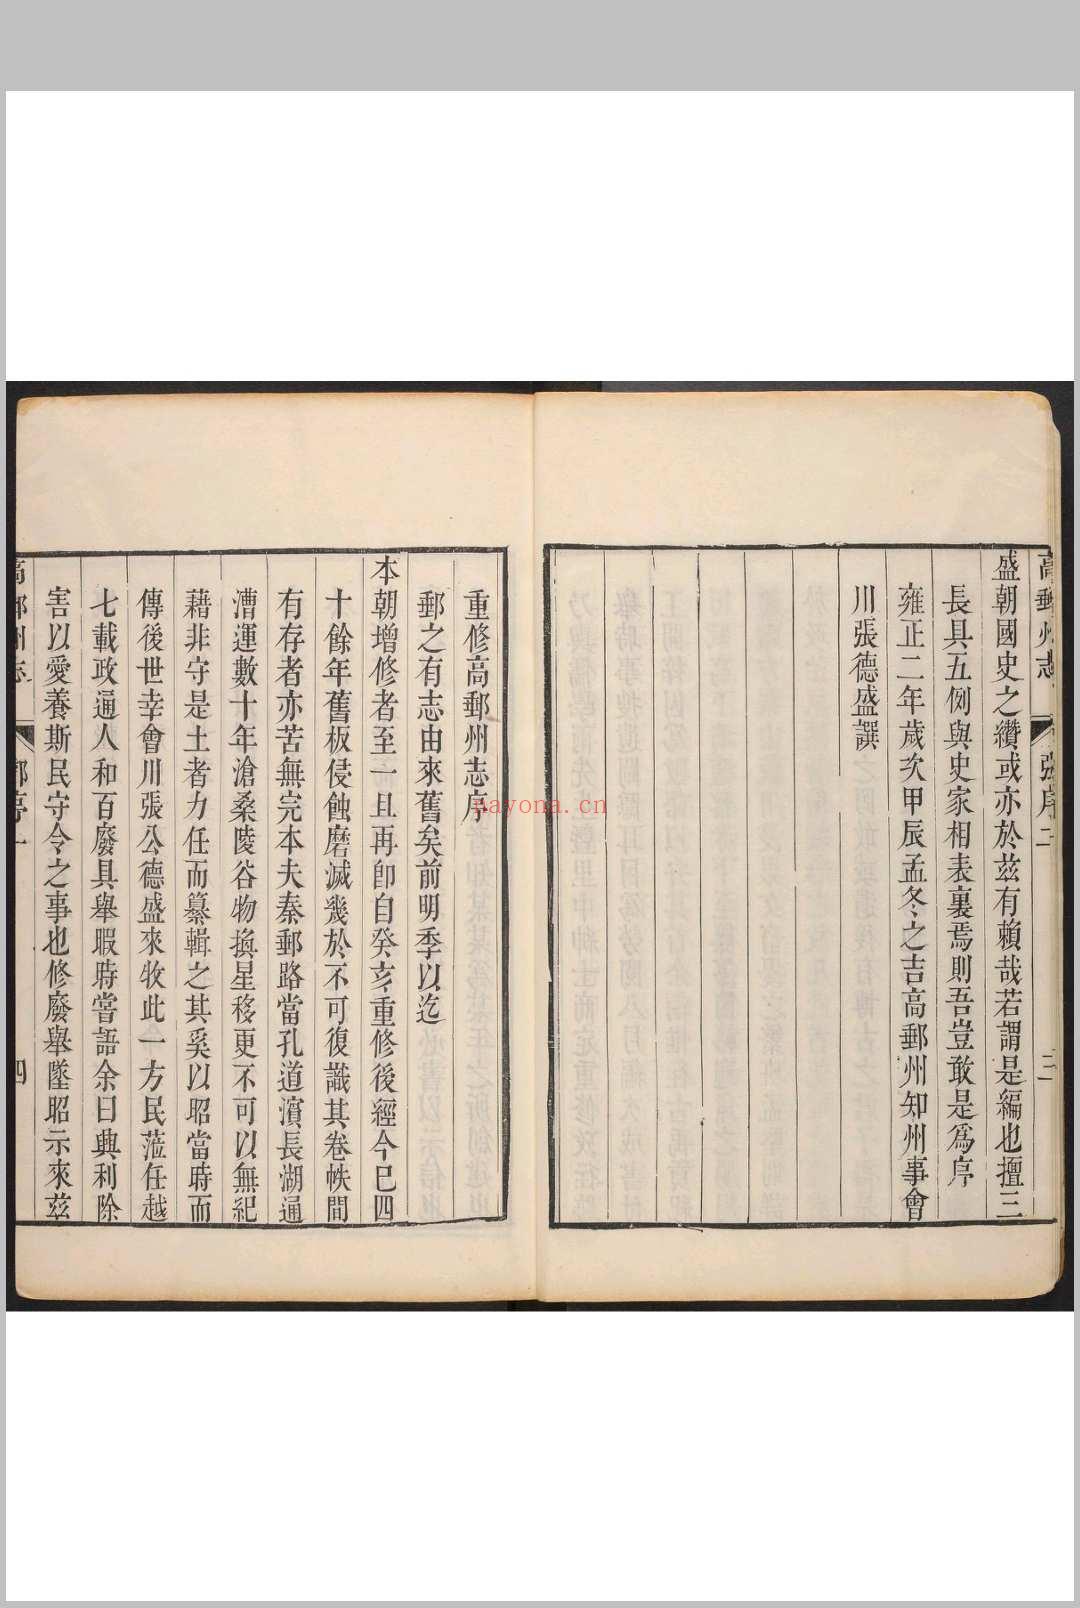 高郵州志
張序二
三
盛朝國史之纘或亦於兹有賴哉若謂是編也擅三
長具五例與史家相表裏焉則吾豈敢是爲序
雍正二年歲次甲辰孟冬之吉高郵州知州事會
川張德盛譔
重修高郵州志序
郵之有志由來舊矣前明季以迄
本朝增修者至一且再卽自癸亥重修後經今巳四
十餘年舊板侵蝕磨滅幾於不可復識其卷帙間
有存者亦苦無完本夫秦郵路當孔道濱長湖通
漕運數十年滄桑陵谷物換星移更不可以無紀
藉非守是土者力任而纂輯之其奚以昭當時而
傳後世幸會川張公德盛來牧此一方民蒞任越
七載政通人和百廢具舉暇時嘗語余曰興利除
害以愛養斯民守令之事也修廢舉墜昭示來茲
高郵州志
四
nayona.cn